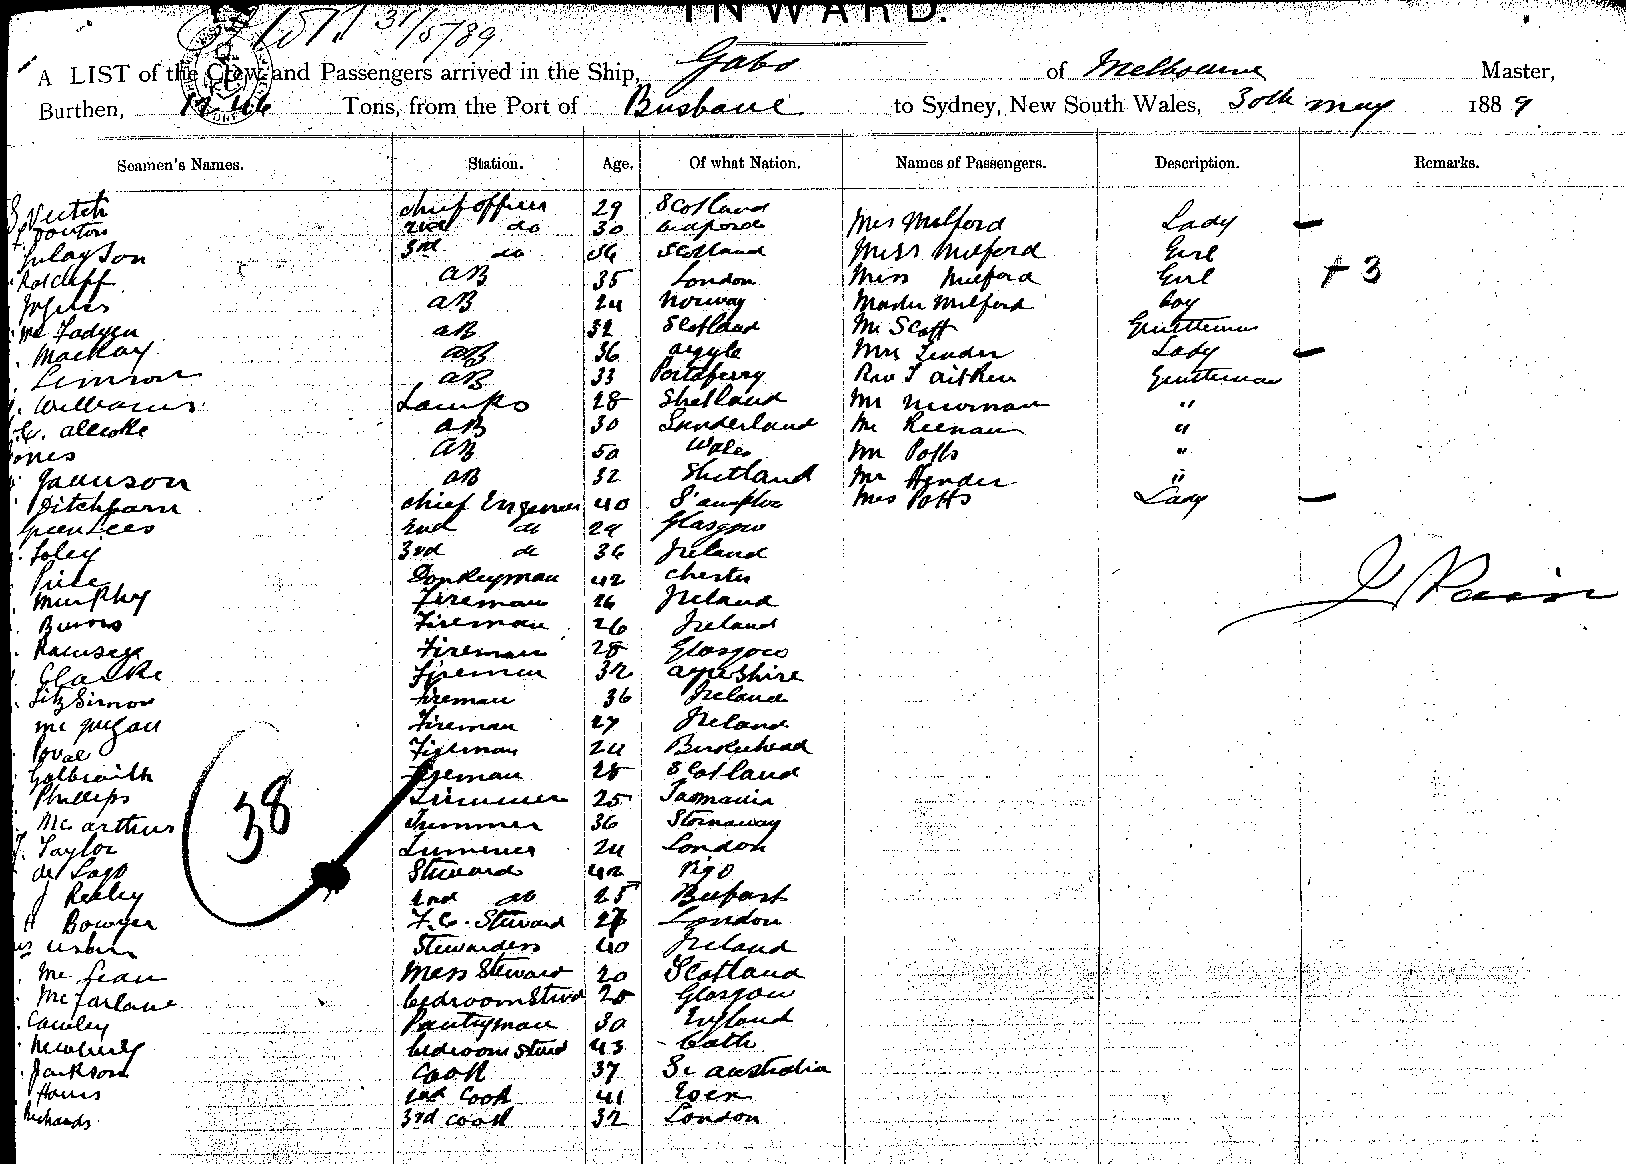 INWARD.
31/5/89
A LIST of the Crew and Passengers arrived in the Ship, Gabo of Melbourne Master,
Burthen, Tons, from the Port of Brisbane to Sydney, New South Wales, 30th may 1889
Seamen's Names. Station. Age. Of what Nation. Names of Passengers. Description. Remarks.
Veitch chief officer 29 Scotland Mrs Milford Lady –
2nd do 30 Miss Milford Girl
Finlayson 3rd do Scotland Miss Milford Girl + 3
Ratcliff aB 35 London Master Milford boy
aB 24 Norway Mr Scott Gentleman
Mc Fadyen aB 32 Scotland Mrs Lady –
Mackay aB 36 argyle Rev J aitken Gentleman
aB 33 Portaferry Mr Newman "
Williams Lamps 28 Shetland Mr Keenan "
aB 30 Sunderland Mr Potts "
Jones aB 50 Wales Mr Hender "
Jamieson aB 32 Shetland Mrs Potts Lady –
Ditchfarn chief Engineer 40 S'ampton
GreenLees 2nd do 29 Glasgow
Foley 3rd do 36 Ireland
Price Donkeyman 42 chester
Murphy Fireman 26 Ireland
Burns Fireman 26 Ireland
Ramsage Fireman 28 Glasgow
Clarke Fireman 32 ayrshire
FitzSimon Fireman 36 Ireland
Mc guigan Fireman 27 Ireland
Poval Fireman 24 Birkenhead
Galbraith Fireman 28 Scotland
Phillips Trimmer 25 Tasmania
38
Mc arthur Trimmer 36 Stornaway
Taylor Trimmer 24 London
de Lago Steward 42 Vigo
J Reiley 2nd do 25 Belfast
H Bowyer F.C. Steward 27 London
Stewardess 40 Ireland
Mc Lean Mess Steward 20 Scotland
Mc farlane bedroom Stwd 28 Glasgow
Cauley Pantryman 30 England
Newberry bedroom Stwd 43 Bath
Jackson Cook 37 So australia
Harris 2nd Cook 41 Essex
Richards 3rd cook 32 London